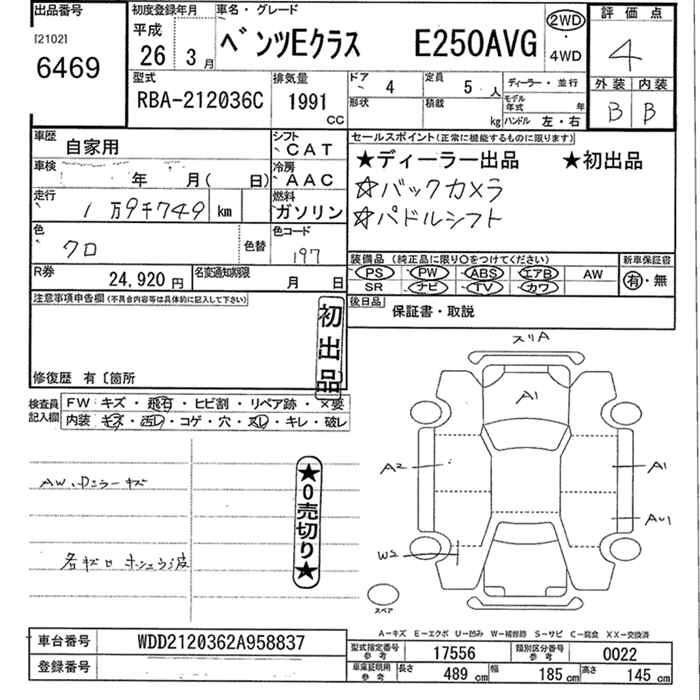 出品番号 初度登録年月 車名・グレード 評価点
[2102] 平成 2WD
6469 26年 3月 ベンツEクラス E250AVG ・ 4
4WD
型式 排気量 ドア 4 定員 5人 ディーラー・並行 外装 内装
RBA-212036C 1991 CC 形状 積載 kg モデル年式 年 B B
ハンドル 左・右
車歴 自家用 シフト CAT セールスポイント(正常に機能するものに限ります)
車検 年 月( 日) 冷房 AAC ★ディーラー出品 ★初出品
走行 1万9千749 km 燃料 ガソリン ☆バックカメラ
☆パドルシフト
色 クロ 色替 色コード 197
装備品 (純正品に限り○をつけてください) 新車保証書
R券 24,920円 名変通知期限 月 日 PS PW ABS エアB AW 有・無
SR ナビ TV カワ
注意事項申告欄(不具合内容等は具体的に記入して下さい) 後日品 保証書・取説
初出品
修復歴 有〔箇所
検査員記入欄 FW キズ・飛石・ヒビ割・リペア跡・×要
内装 キズ・汚レ・コゲ・穴・スレ・キレ・破レ
スリA
A1
A2 A1
AU1
W2
AW、Dミラーキズ
★0売切り★
スペア
A-キズ E-エクボ U-凹み W-補修跡 S-サビ C-腐食 XX-交換済
車台番号 WDD2120362A958837 型式指定番号 参考 17556 類別区分番号 参考 0022
登録番号 車庫証明用 参考 長さ 489cm 幅 185cm 高さ 145cm